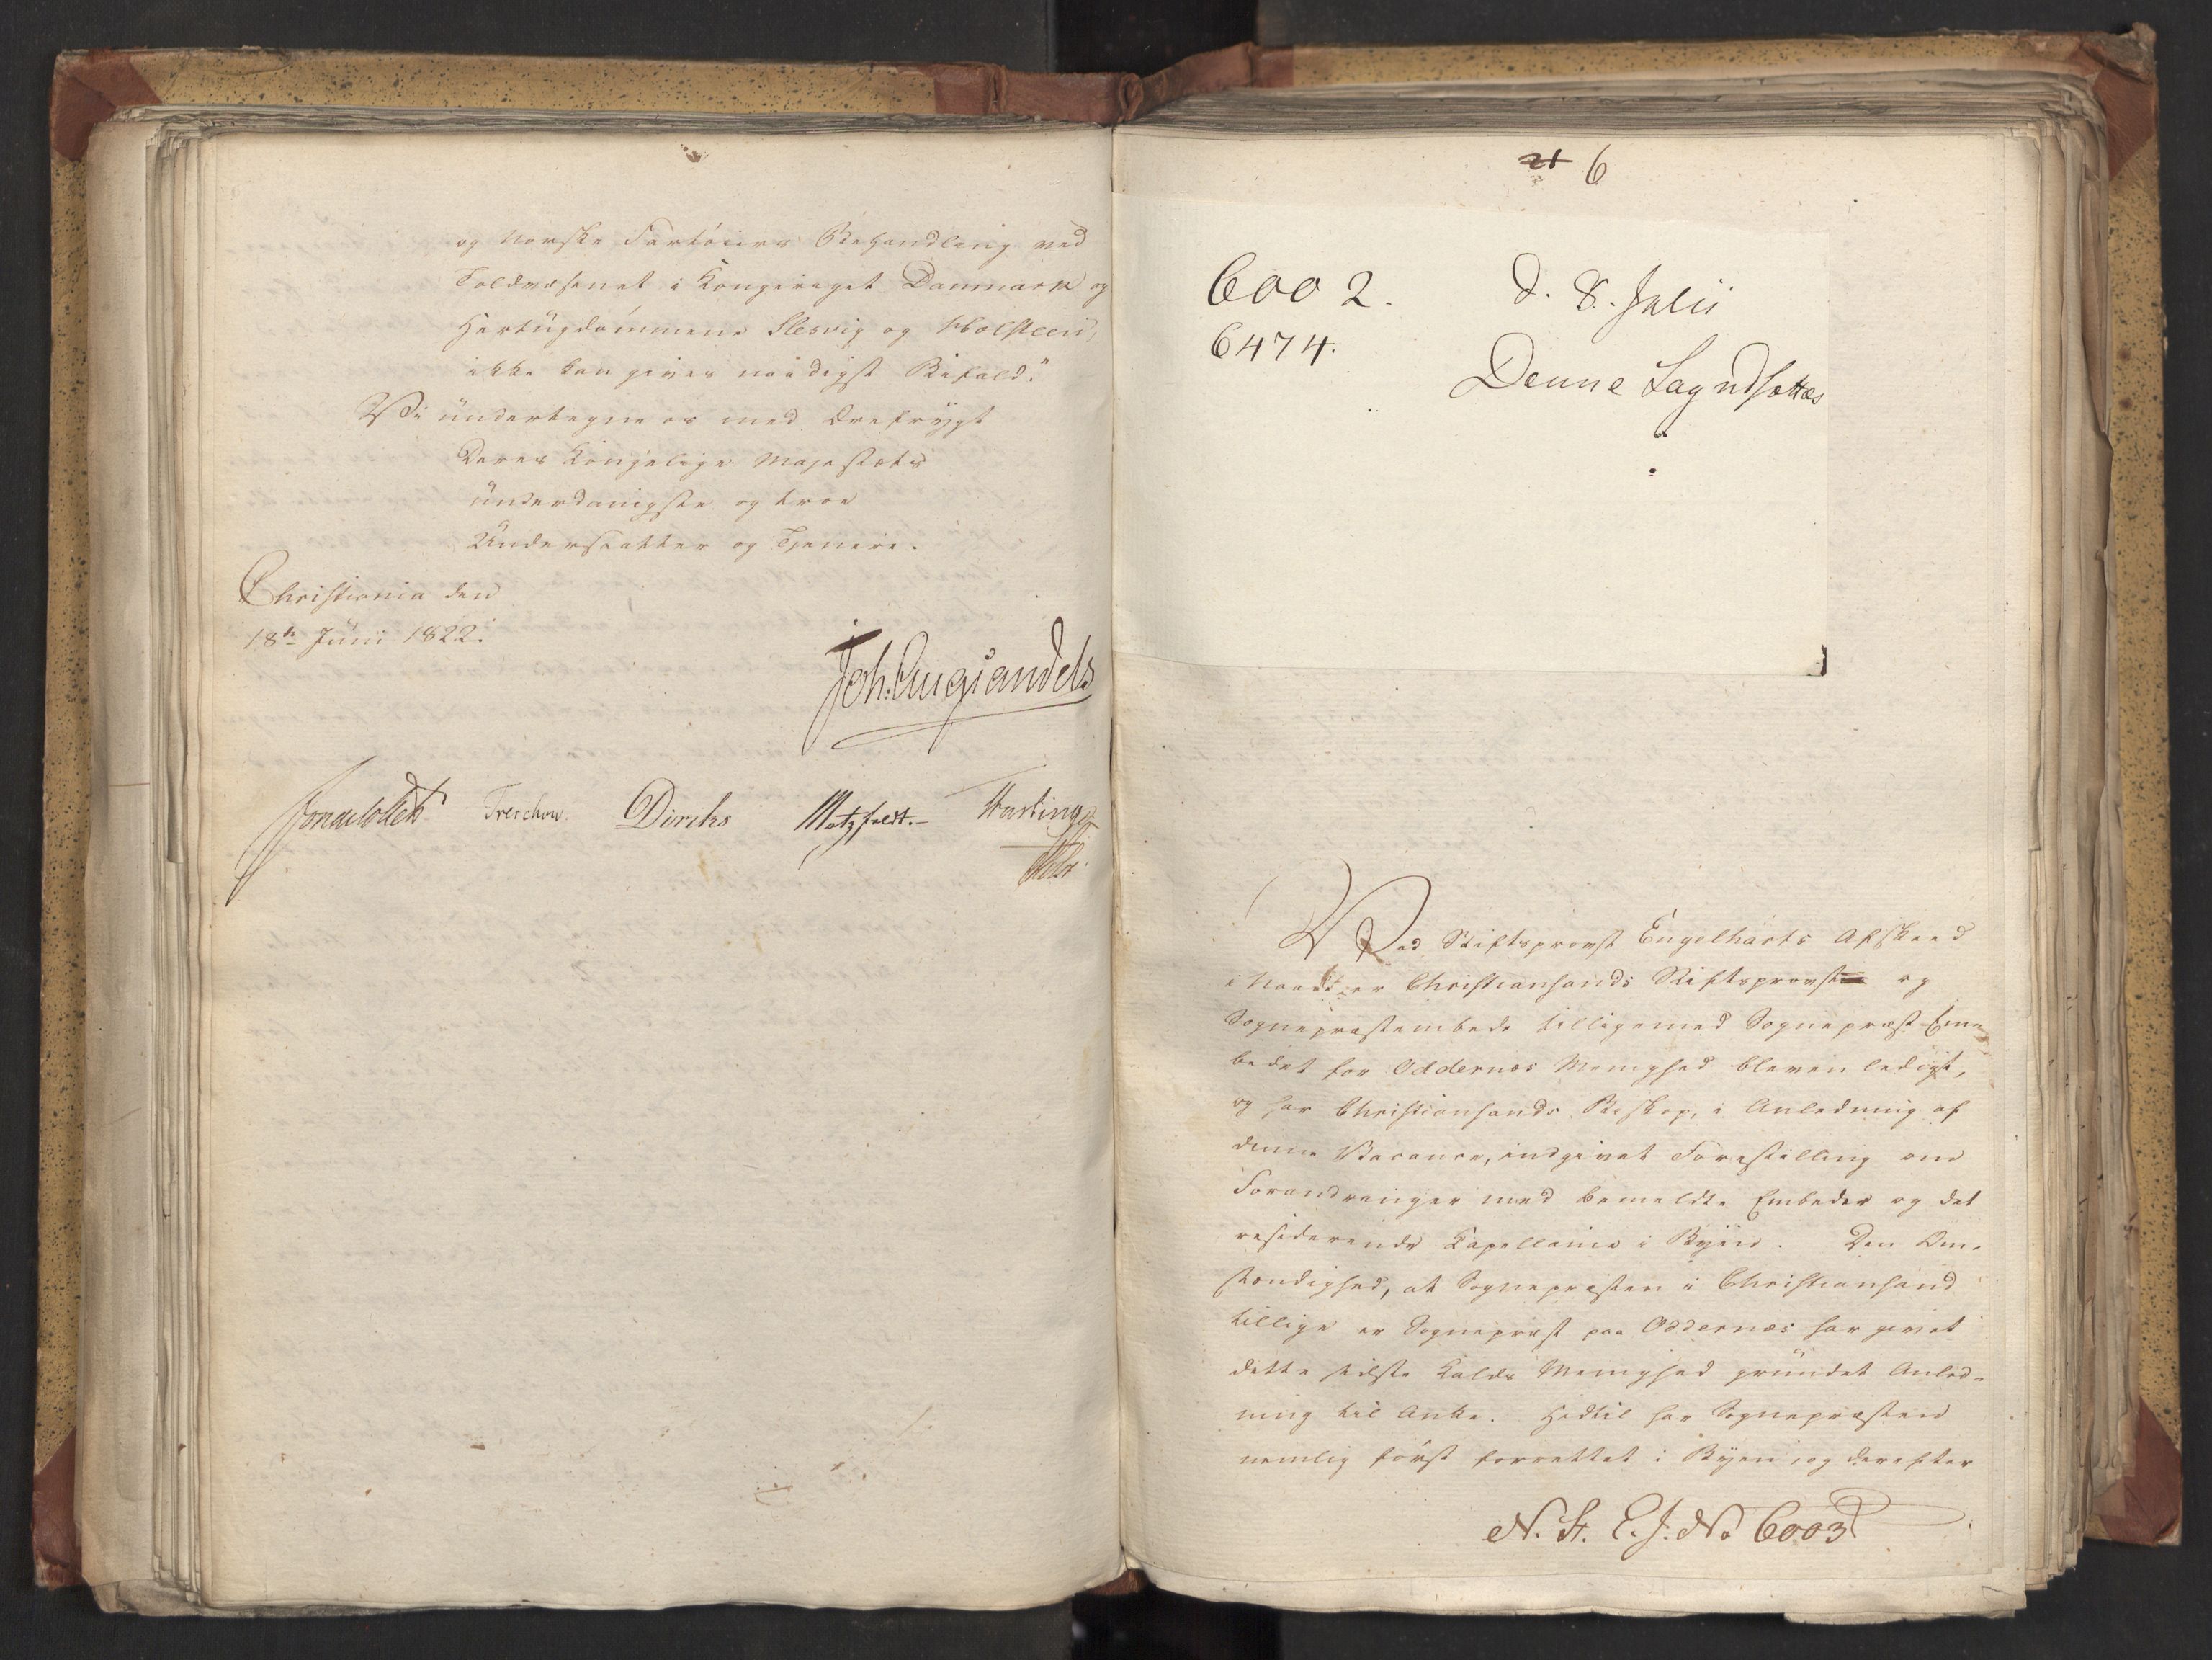 og Norske Fartøiers Behandling ved
Toldvæsenet i Kongeriget Danmark og
Hertugdømmene Slesvig og Holsteen,
ikke kan gives naadigst Bifald."
Vi undertegne os med Ærefrygt
Deres Kongelige Majestæts
underdanigste og troe
Undersaatter og Tjenere.
Christiania den
18de Juni 1822.
Joh. Aug. Sandels
Treschow. Diriks Motzfeldt.
6
6002. d. 8. Julii
6474.
Denne Sag udsættes
Ved Stiftsprovst Engelharts Afskeed
i Naade er Christiansands Stiftsprovst og
Sognepræstembede tilligemed Sognepræst-Em¬
bedet for Oddernæs Menighed bleven ledigt,
og har Christiansands Biskop, i Anledning af
denne Vacance, indgivet Forestilling om
Forandringer med bemeldte Embeder og det
residerende Capellanie i Byen. Den Om¬
stændighed, at Sognepræsten i Christiansand
tillige er Sognepræst paa Oddernæs har givet
dette sidste Kalds Menighed grundet Anled¬
ning til Anke. Hidtil har Sognepræsten
nemlig først forrettet i Byen, og derefter
N. St. E. J. No 6003